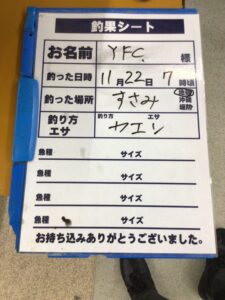 釣果シート
お名前 YFC. 様
釣った日時 11月22日 7時頃
釣った場所 すさみ 地磯 沖磯 堤防
釣り方 エサ 釣り方 エサ カエン
魚種 サイズ
魚種 サイズ
魚種 サイズ
魚種 サイズ
お持ち込みありがとうございました。